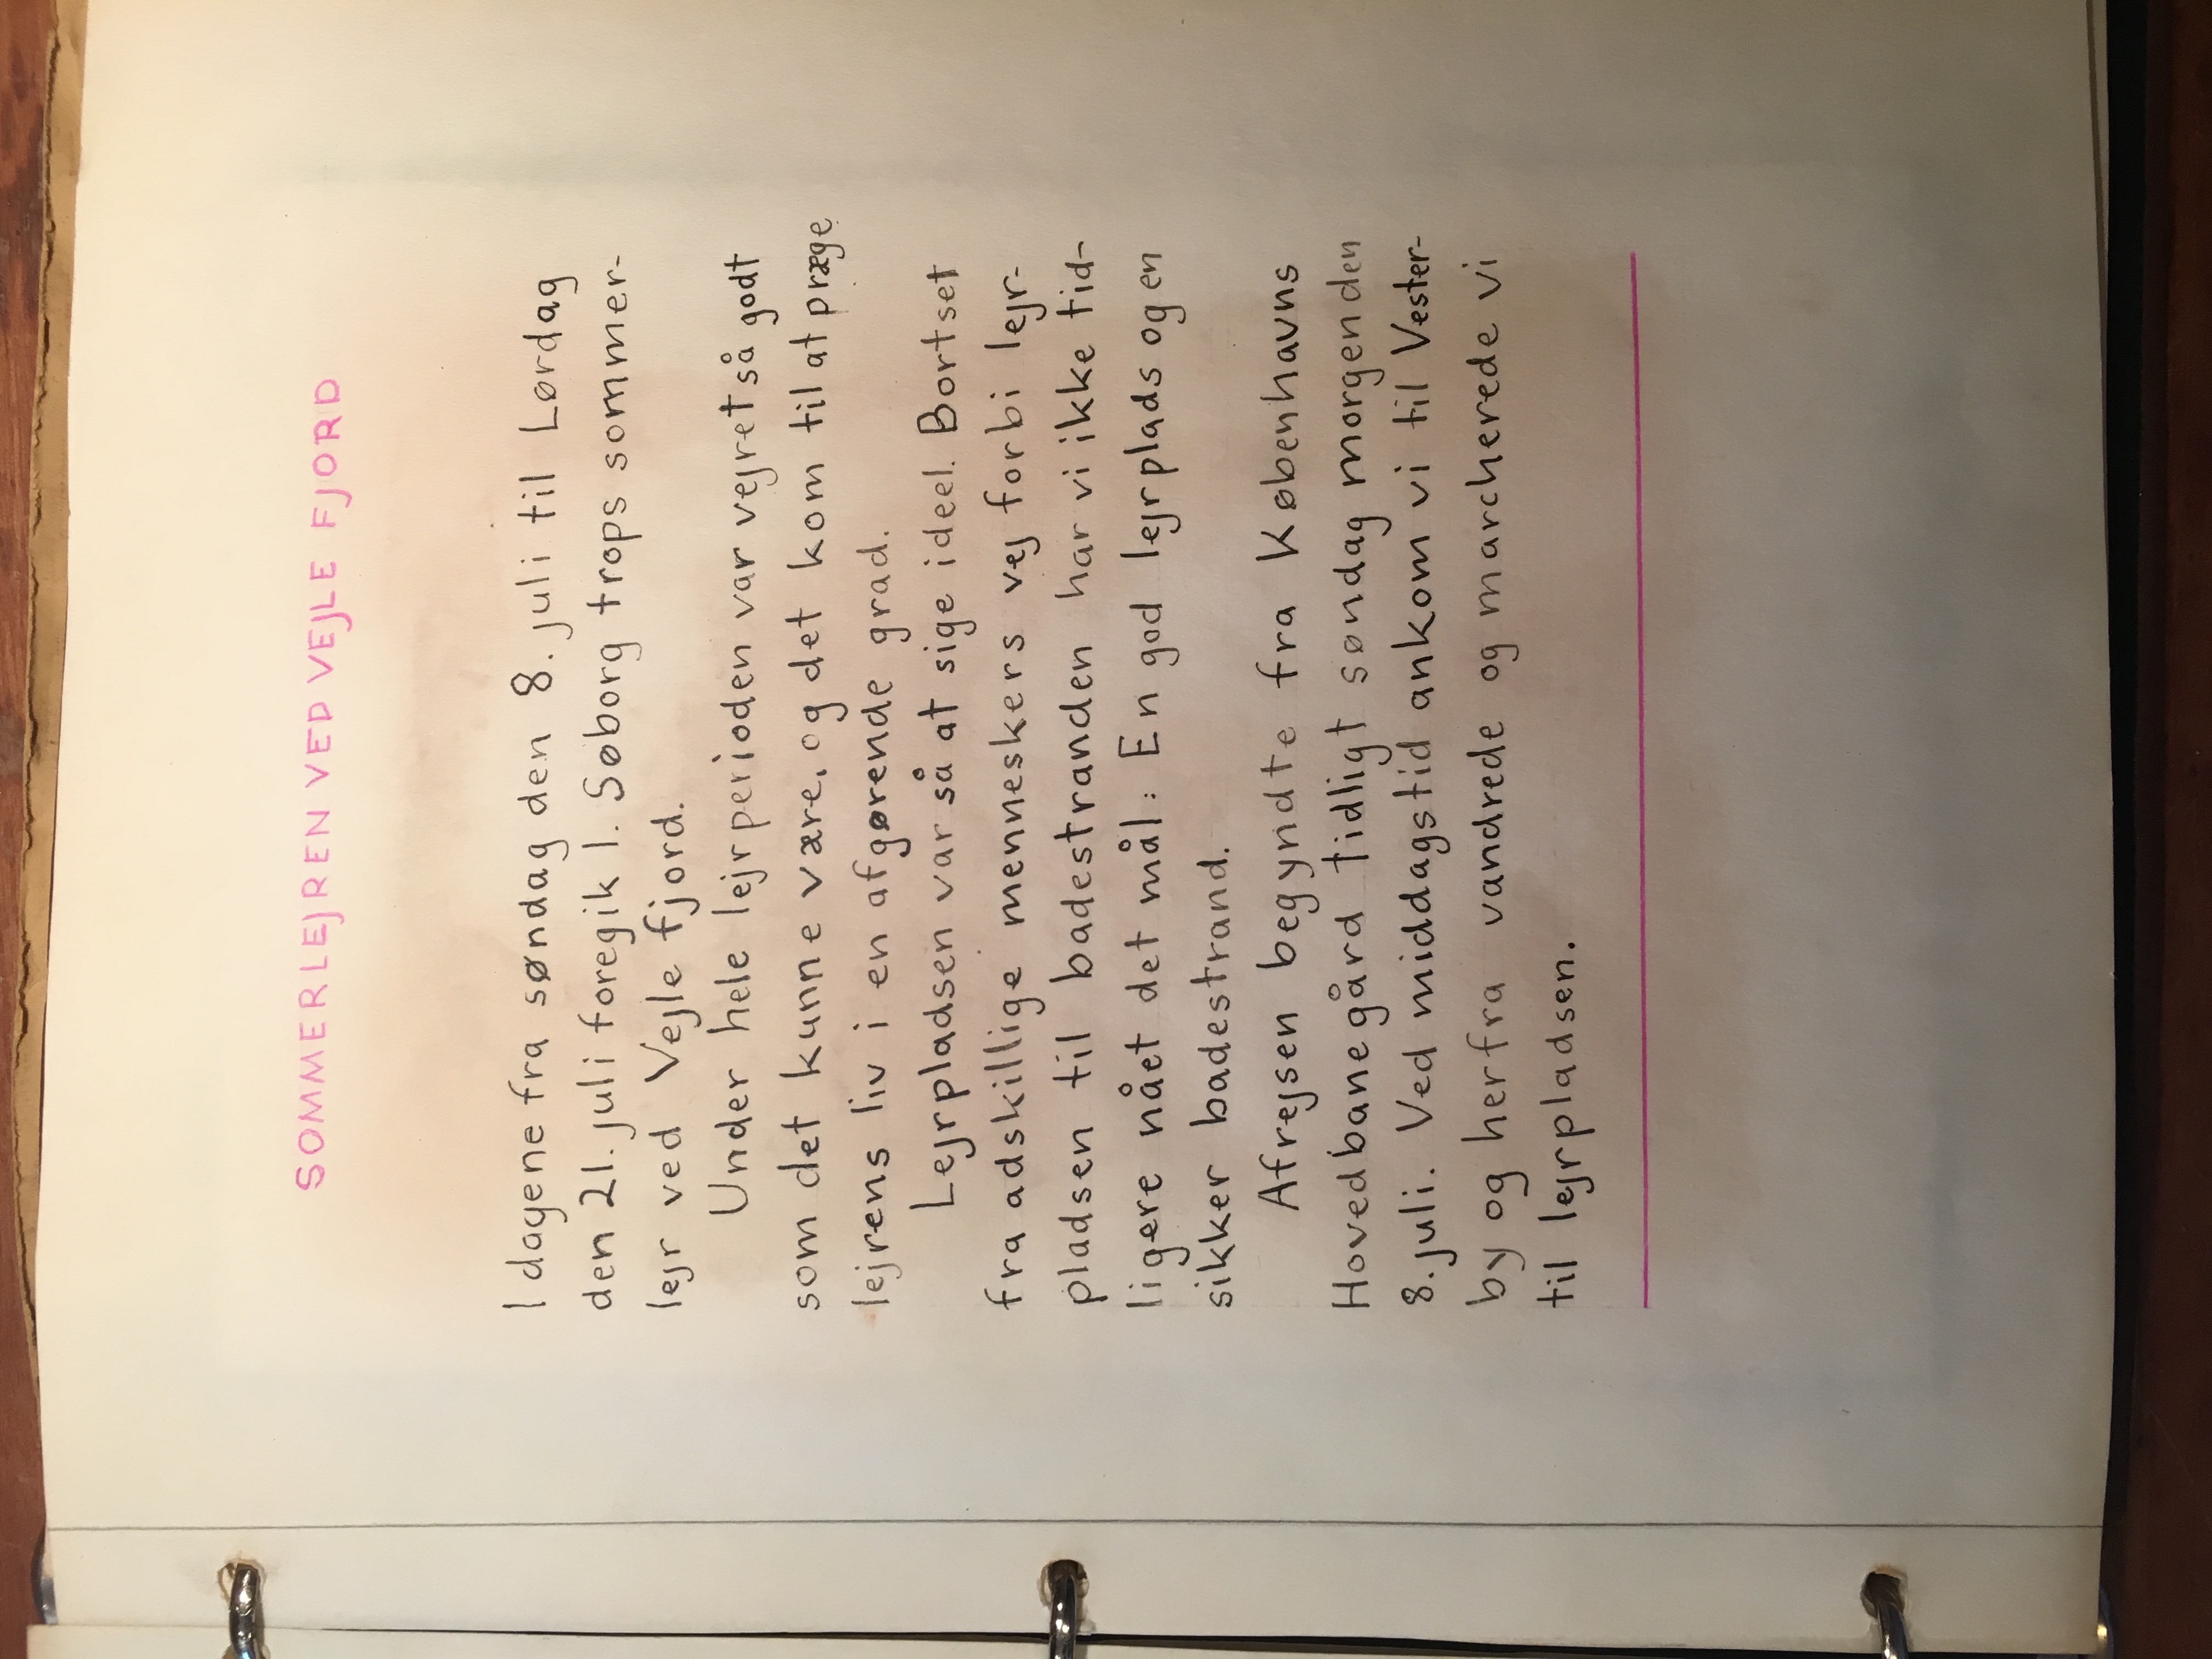 SOMMERLEJREN VED VEJLE FJORD
I dagene fra søndag den 8. juli til Lørdag
den 21. juli foregik 1. Søborg trops sommer-
lejr ved Vejle fjord.
Under hele lejrperioden var vejret så godt
som det kunne være, og det kom til at præge
lejrens liv i en afgørende grad.
Lejrpladsen var så at sige ideel. Bortset
fra adskillige menneskers vej forbi lejr-
pladsen til badestranden har vi ikke tid-
ligere nået det mål: En god lejrplads og en
sikker badestrand.
Afrejsen begyndte fra Københavns
Hovedbanegård tidligt søndag morgen den
8. juli. Ved middagstid ankom vi til Vester-
by og herfra vandrede og marcherede vi
til lejrpladsen.